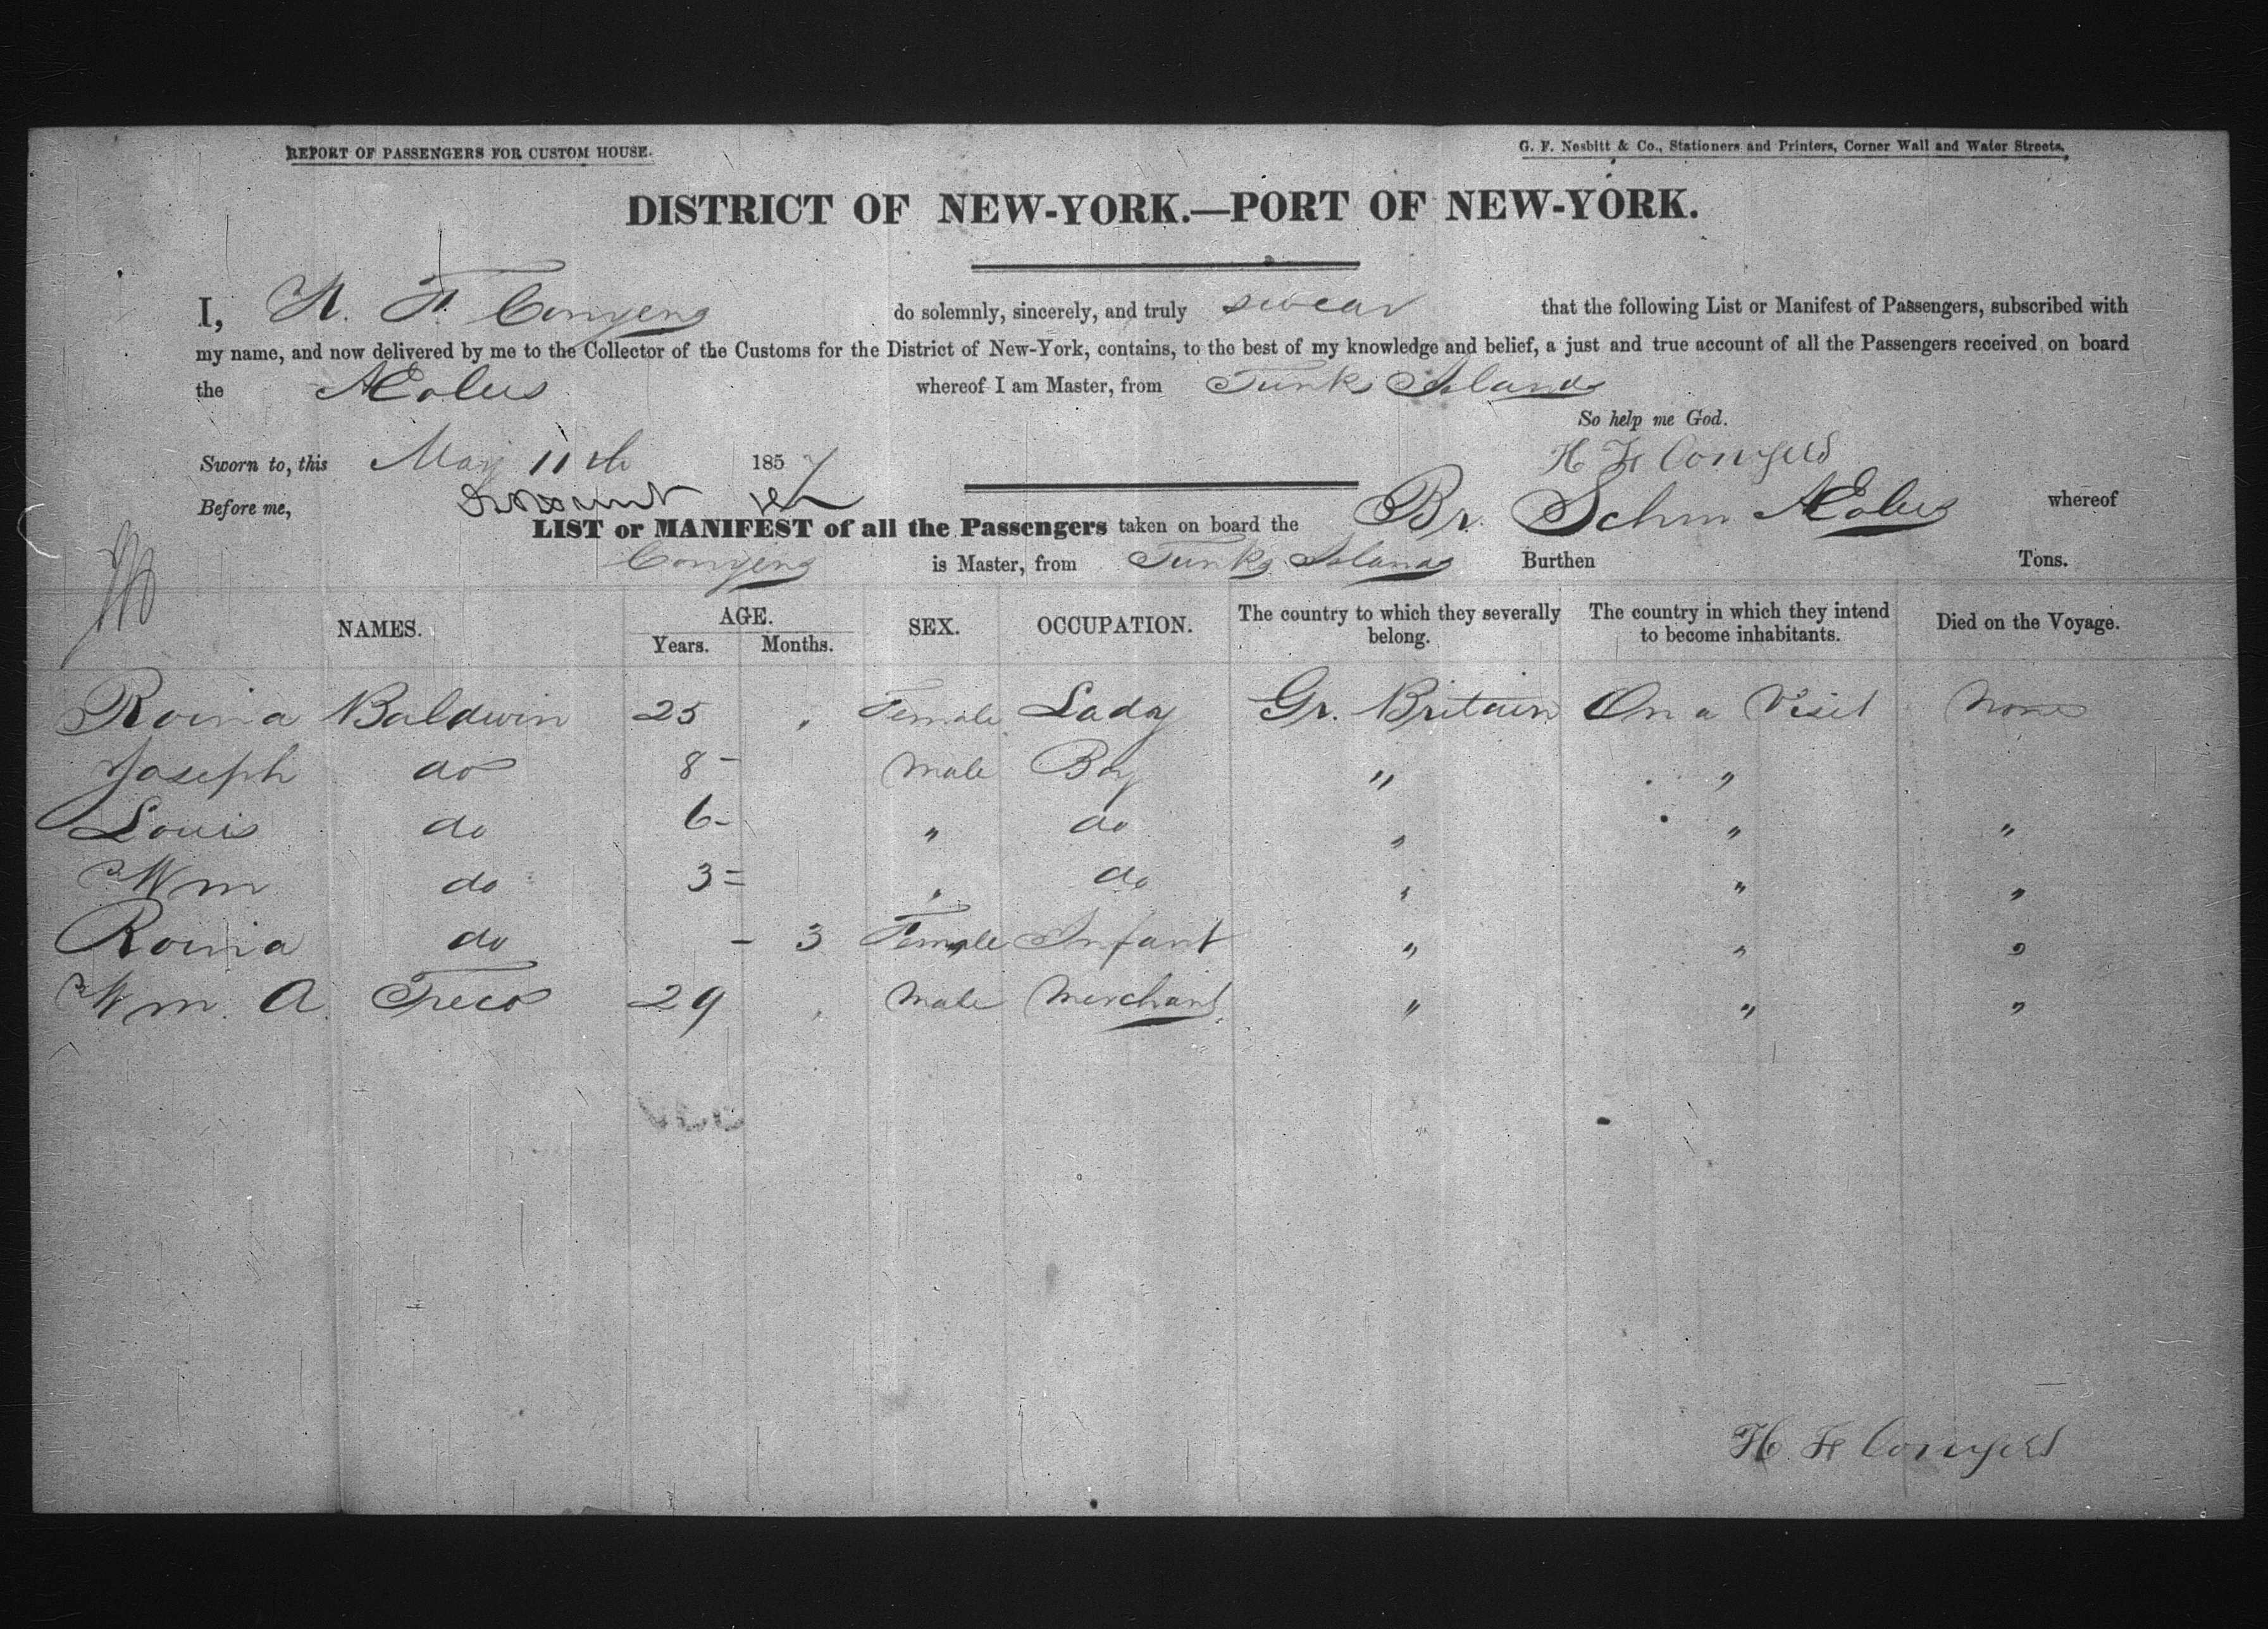 REPORT OF PASSENGERS FOR CUSTOM HOUSE.
G. F. Nesbitt & Co., Stationers and Printers, Corner Wall and Water Streets,
DISTRICT OF NEW-YORK.—PORT OF NEW-YORK.
I, H. F. Conyers do solemnly, sincerely, and truly swear that the following List or Manifest of Passengers, subscribed with
my name, and now delivered by me to the Collector of the Customs for the District of New-York, contains, to the best of my knowledge and belief, a just and true account of all the Passengers received on board
the Æolus whereof I am Master, from Turks Islands
So help me God.
Sworn to, this May 11th 1857 H F Conyers
Before me,
LIST or MANIFEST of all the Passengers taken on board the Br. Schm Æolus whereof
Conyers is Master, from Turks Islands Burthen Tons.
NAMES. AGE. Years. Months. SEX. OCCUPATION. The country to which they severally belong. The country in which they intend to become inhabitants. Died on the Voyage.
Roina Baldwin 25 " Female Lady Gr. Britain On a Visit None
Joseph do 8 - Male Boy " "
Louis do 6 - " do " " "
Wm do 3 = " do " " "
Roina do - 3 Female Infant " " "
Wm. A. Treco 29 " Male Merchant " " "
H F Conyers